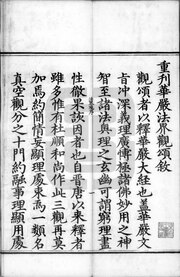 重刋華嚴法界觀頌敘
觀頌者以釋華嚴大經也蓋華嚴文
旨沖深義理廣博極諸佛妙用之神
智至諸法與理之玄幽可謂窮理盡
性徹果該因者也自晉唐以來釋者
雖多惟有杜順和尚作此三觀再莫
加焉約簡情妄顯理處束爲一類名
真空觀分之十門約融事理顯用處